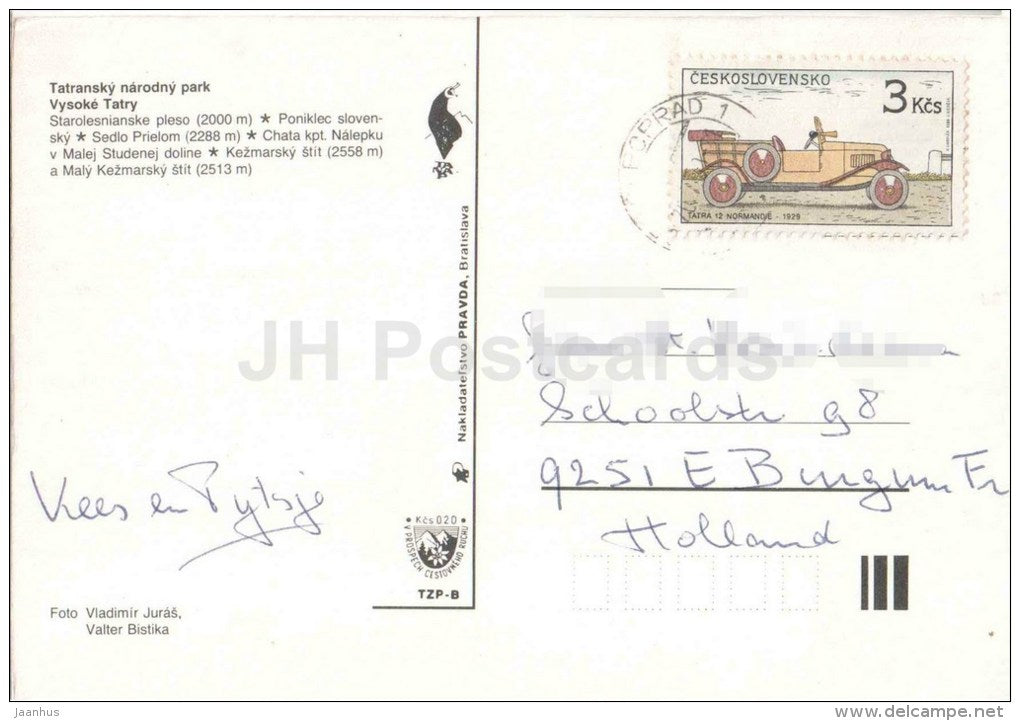 Tatranský národný park
Vysoké Tatry
Starolesnianske pleso (2000 m) ★ Poniklec sloven-
ský ★ Sedlo Prielom (2288 m) ★ Chata kpt. Nálepku
v Malej Studenej doline ★ Kežmarský štít (2558 m)
a Malý Kežmarský štít (2513 m)
ČESKOSLOVENSKO
3 Kčs
TATRA 12 NORMANDIE - 1929
POPRAD 1
Nakladateľstvo PRAVDA, Bratislava
JH Postcards
Schoolstr 98
9251 E Burgum Fr
Holland
Kees en Pytsje
Kčs 020
V PROSPECH CESTOVNÉHO RUCHU
TZP-B
Foto Vladimír Juráš,
Valter Bistika
jaanhus
www.delcampe.net